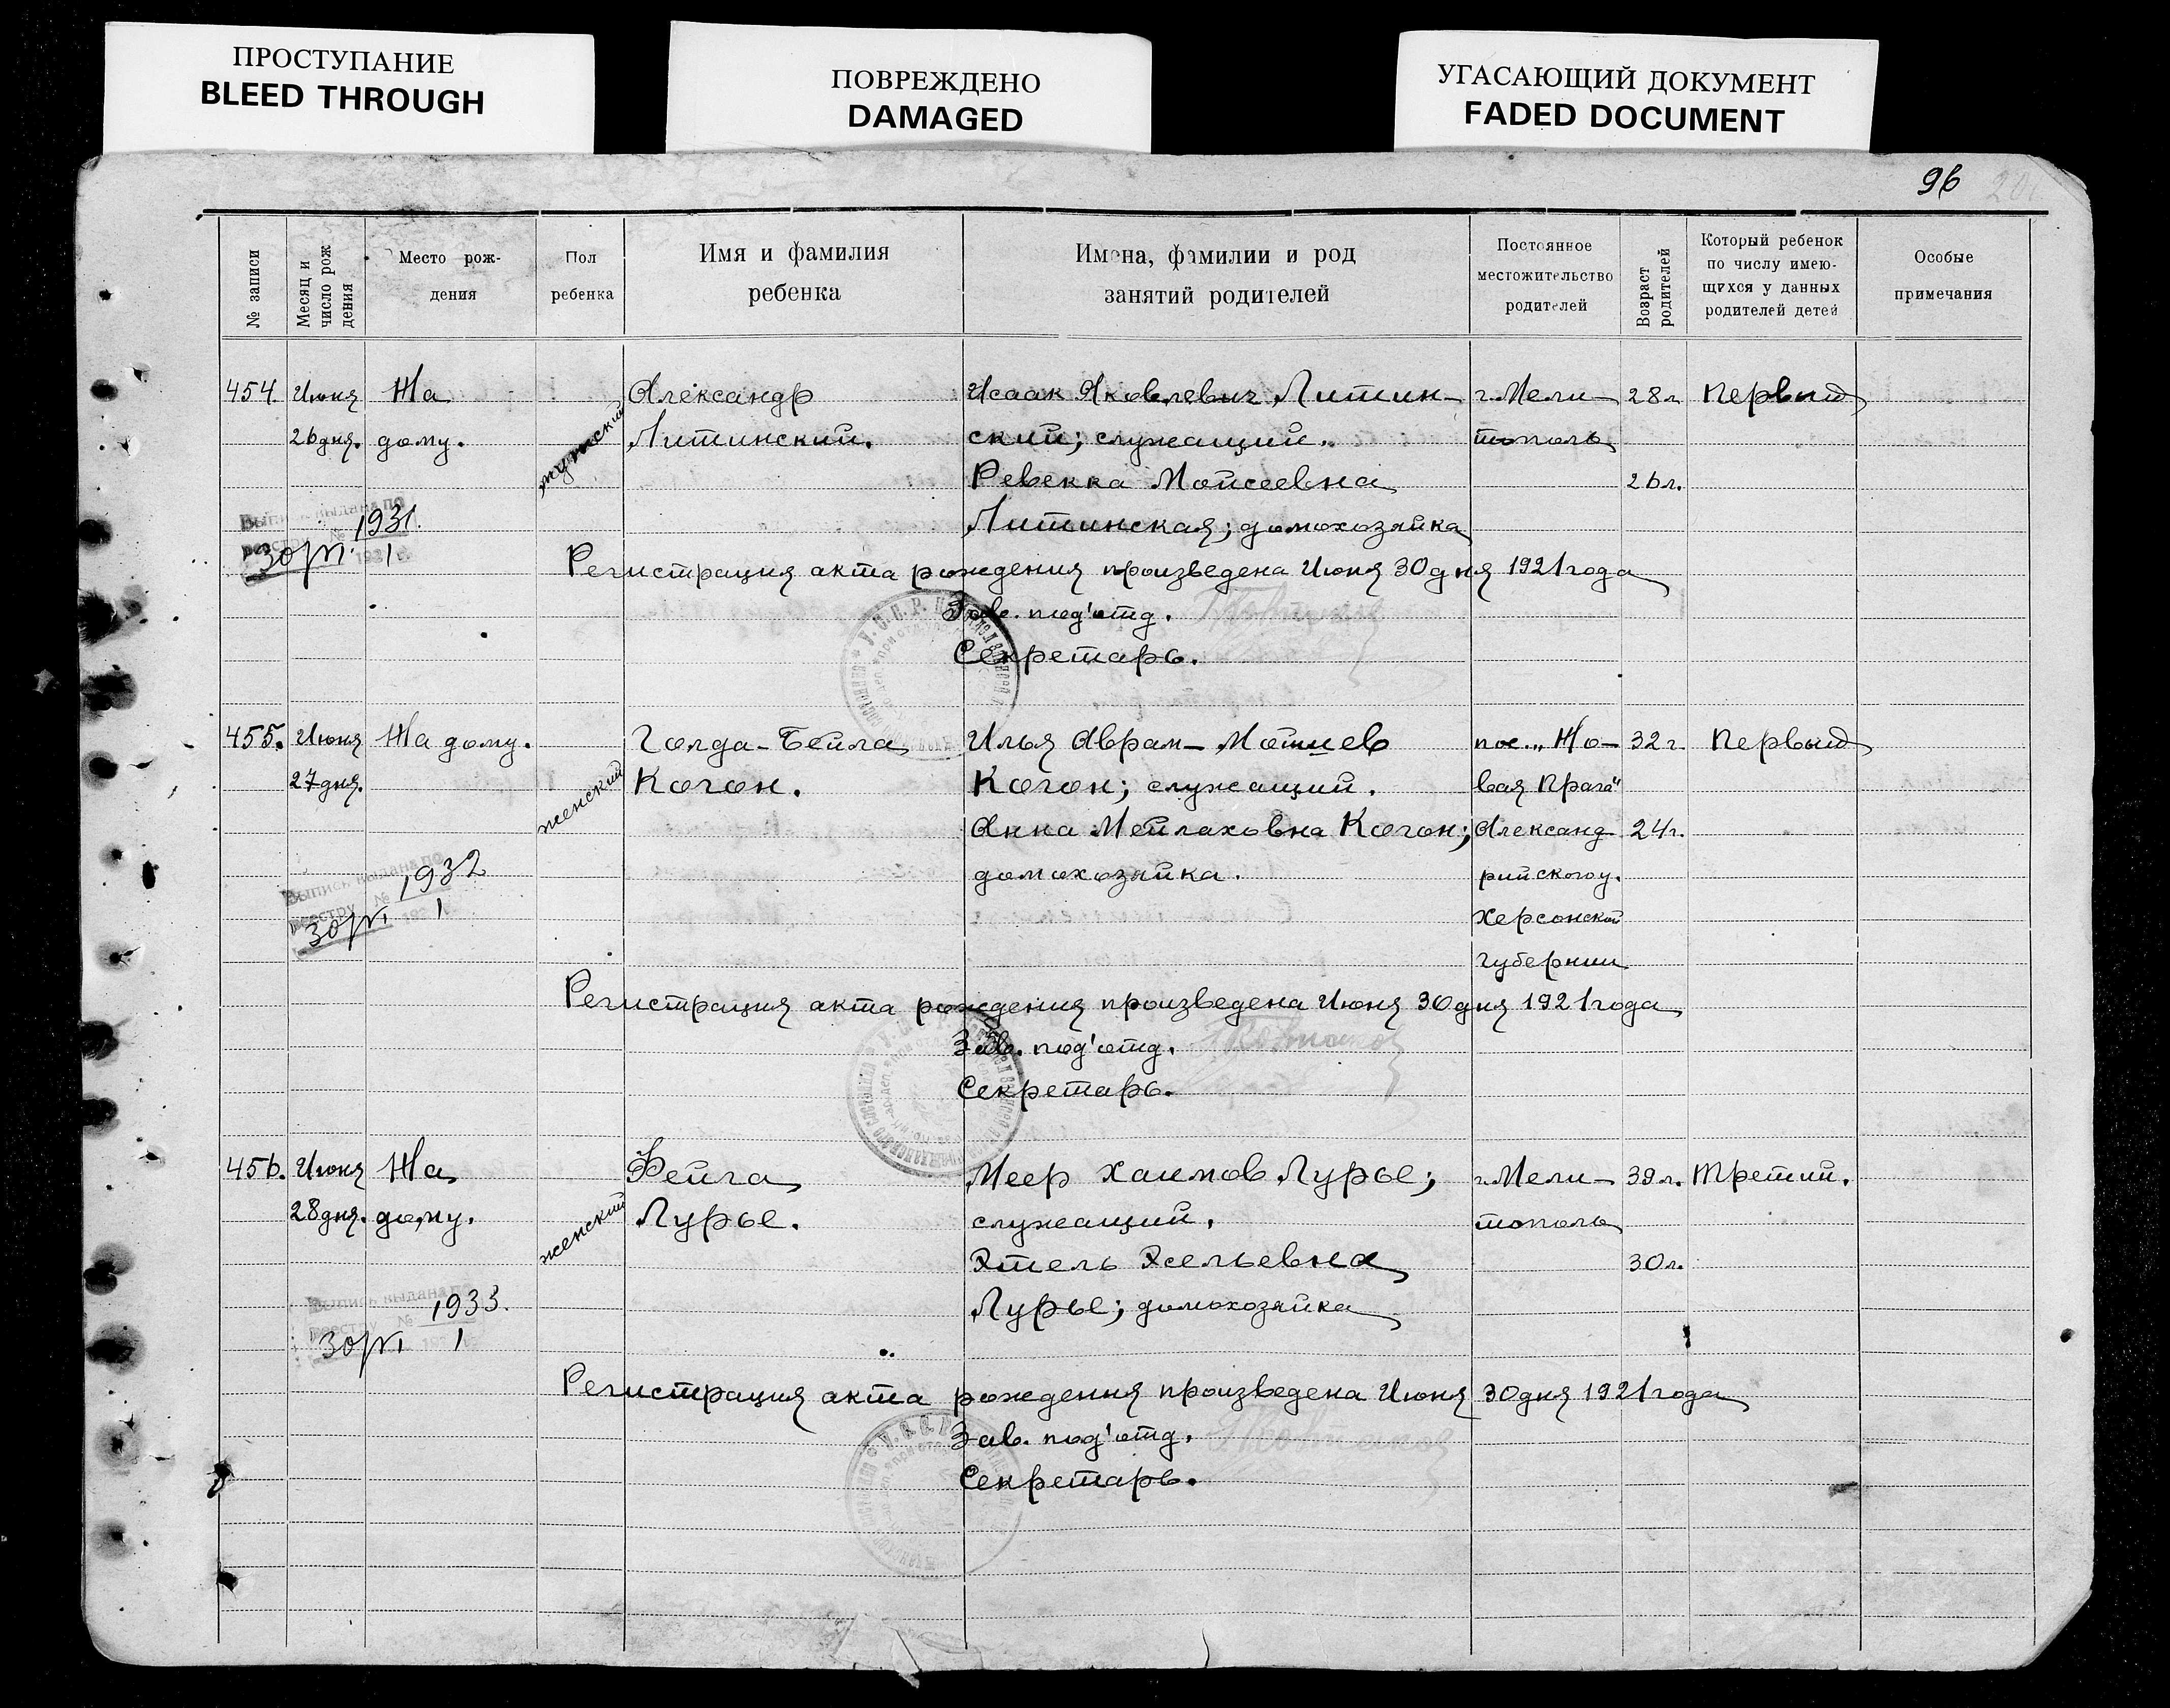 ПРОСТУПАНИЕ
BLEED THROUGH
ПОВРЕЖДЕНО
DAMAGED
УГАСАЮЩИЙ ДОКУМЕНТ
FADED DOCUMENT
96
№ записи
Месяц и
число рож
дения
Место рож-
дения
Пол
ребенка
Имя и фамилия
ребенка
Имена, фамилии и род
занятий родителей
Постоянное
местожительство
родителей
Возраст
родителей
Который ребенок
по числу имею-
щихся у данных
родителей детей
Особые
примечания
454. Июня На мужской Александр Исаак Яковлевич Литин- г. Мели- 28 л Первый
26 дня. дому. Литинский. ский; служащий. тополь
Ревекка Мойсеевна 26 л.
Литинская; домохозяйка
Выпись выдана по
реестру № 1931.
30/VI 1921 г.
Регистрация акта рождения произведена Июня 30 дня 1921 года
Зав. под'отд.
Секретарь.
455. Июня На дому. женский Голда-Бейла Илья Аврам-Мошиев пос. „Но- 32 г. Первый
27 дня. Когон. Когон; служащий. вая Прага"
Анна Мейлаховна Когон; Александ- 24 г.
домохозяйка. рийского у.
Херсонской
губернии
Выпись выдана по
реестру № 1932
30/VI 1921 г.
Регистрация акта рождения произведена Июня 30 дня 1921 года
Зав. под'отд.
Секретарь.
456. Июня На женский Фейга Меер Хаимов Лурье; г. Мели- 39 л. Третий.
28 дня. дому. Лурье. служащий. тополь
Этель Эсельевна 30 л.
Лурье; домохозяйка
Выпись выдана по
реестру № 1933.
30/VI 1921 г.
Регистрация акта рождения произведена Июня 30 дня 1921 года
Зав. под'отд.
Секретарь.